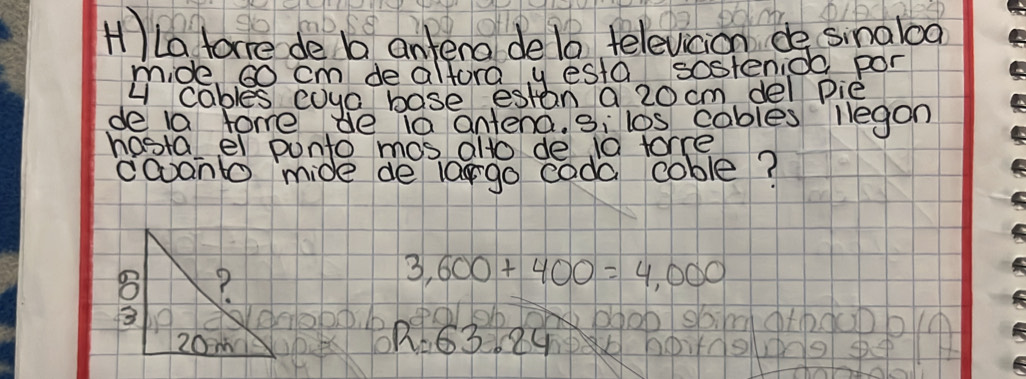 H) La torre de la antena de la televicion de sinaloa
mide 60 cm de altura y esta sostenida por
4 cables cuya base estan a 20 cm del pie
de la torre de la antena. si los cables llegan
hasta el punto mas alto de la torre
cuanto mide de largo cada cable?
? 3,600 + 400 = 4,000
60
20m R= 63.24